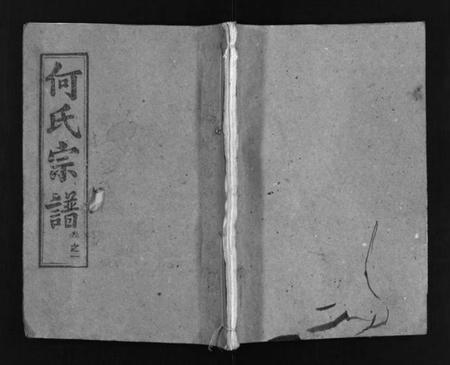 何氏宗譜卷之一